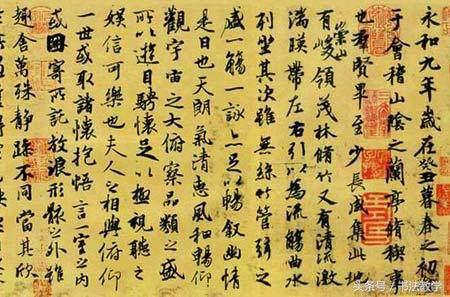 永和九年歲在癸丑暮春之初
于會稽山陰之蘭亭脩稧事
也群賢畢至少長咸集此地
有崇山峻領茂林脩竹又有清流激
湍暎帶左右引以為流觴曲水
列坐其次雖無絲竹管弦之
盛一觴一詠亦足以暢敘幽情
是日也天朗氣清惠風和暢仰
觀宇宙之大俯察品類之盛
所以遊目騁懷足以極視聽之
娛信可樂也夫人之相與俯仰
一世或取諸懷抱悟言一室之內
或因寄所託放浪形骸之外雖
趣舍萬殊靜躁不同當其欣
头条号 / 书法教学